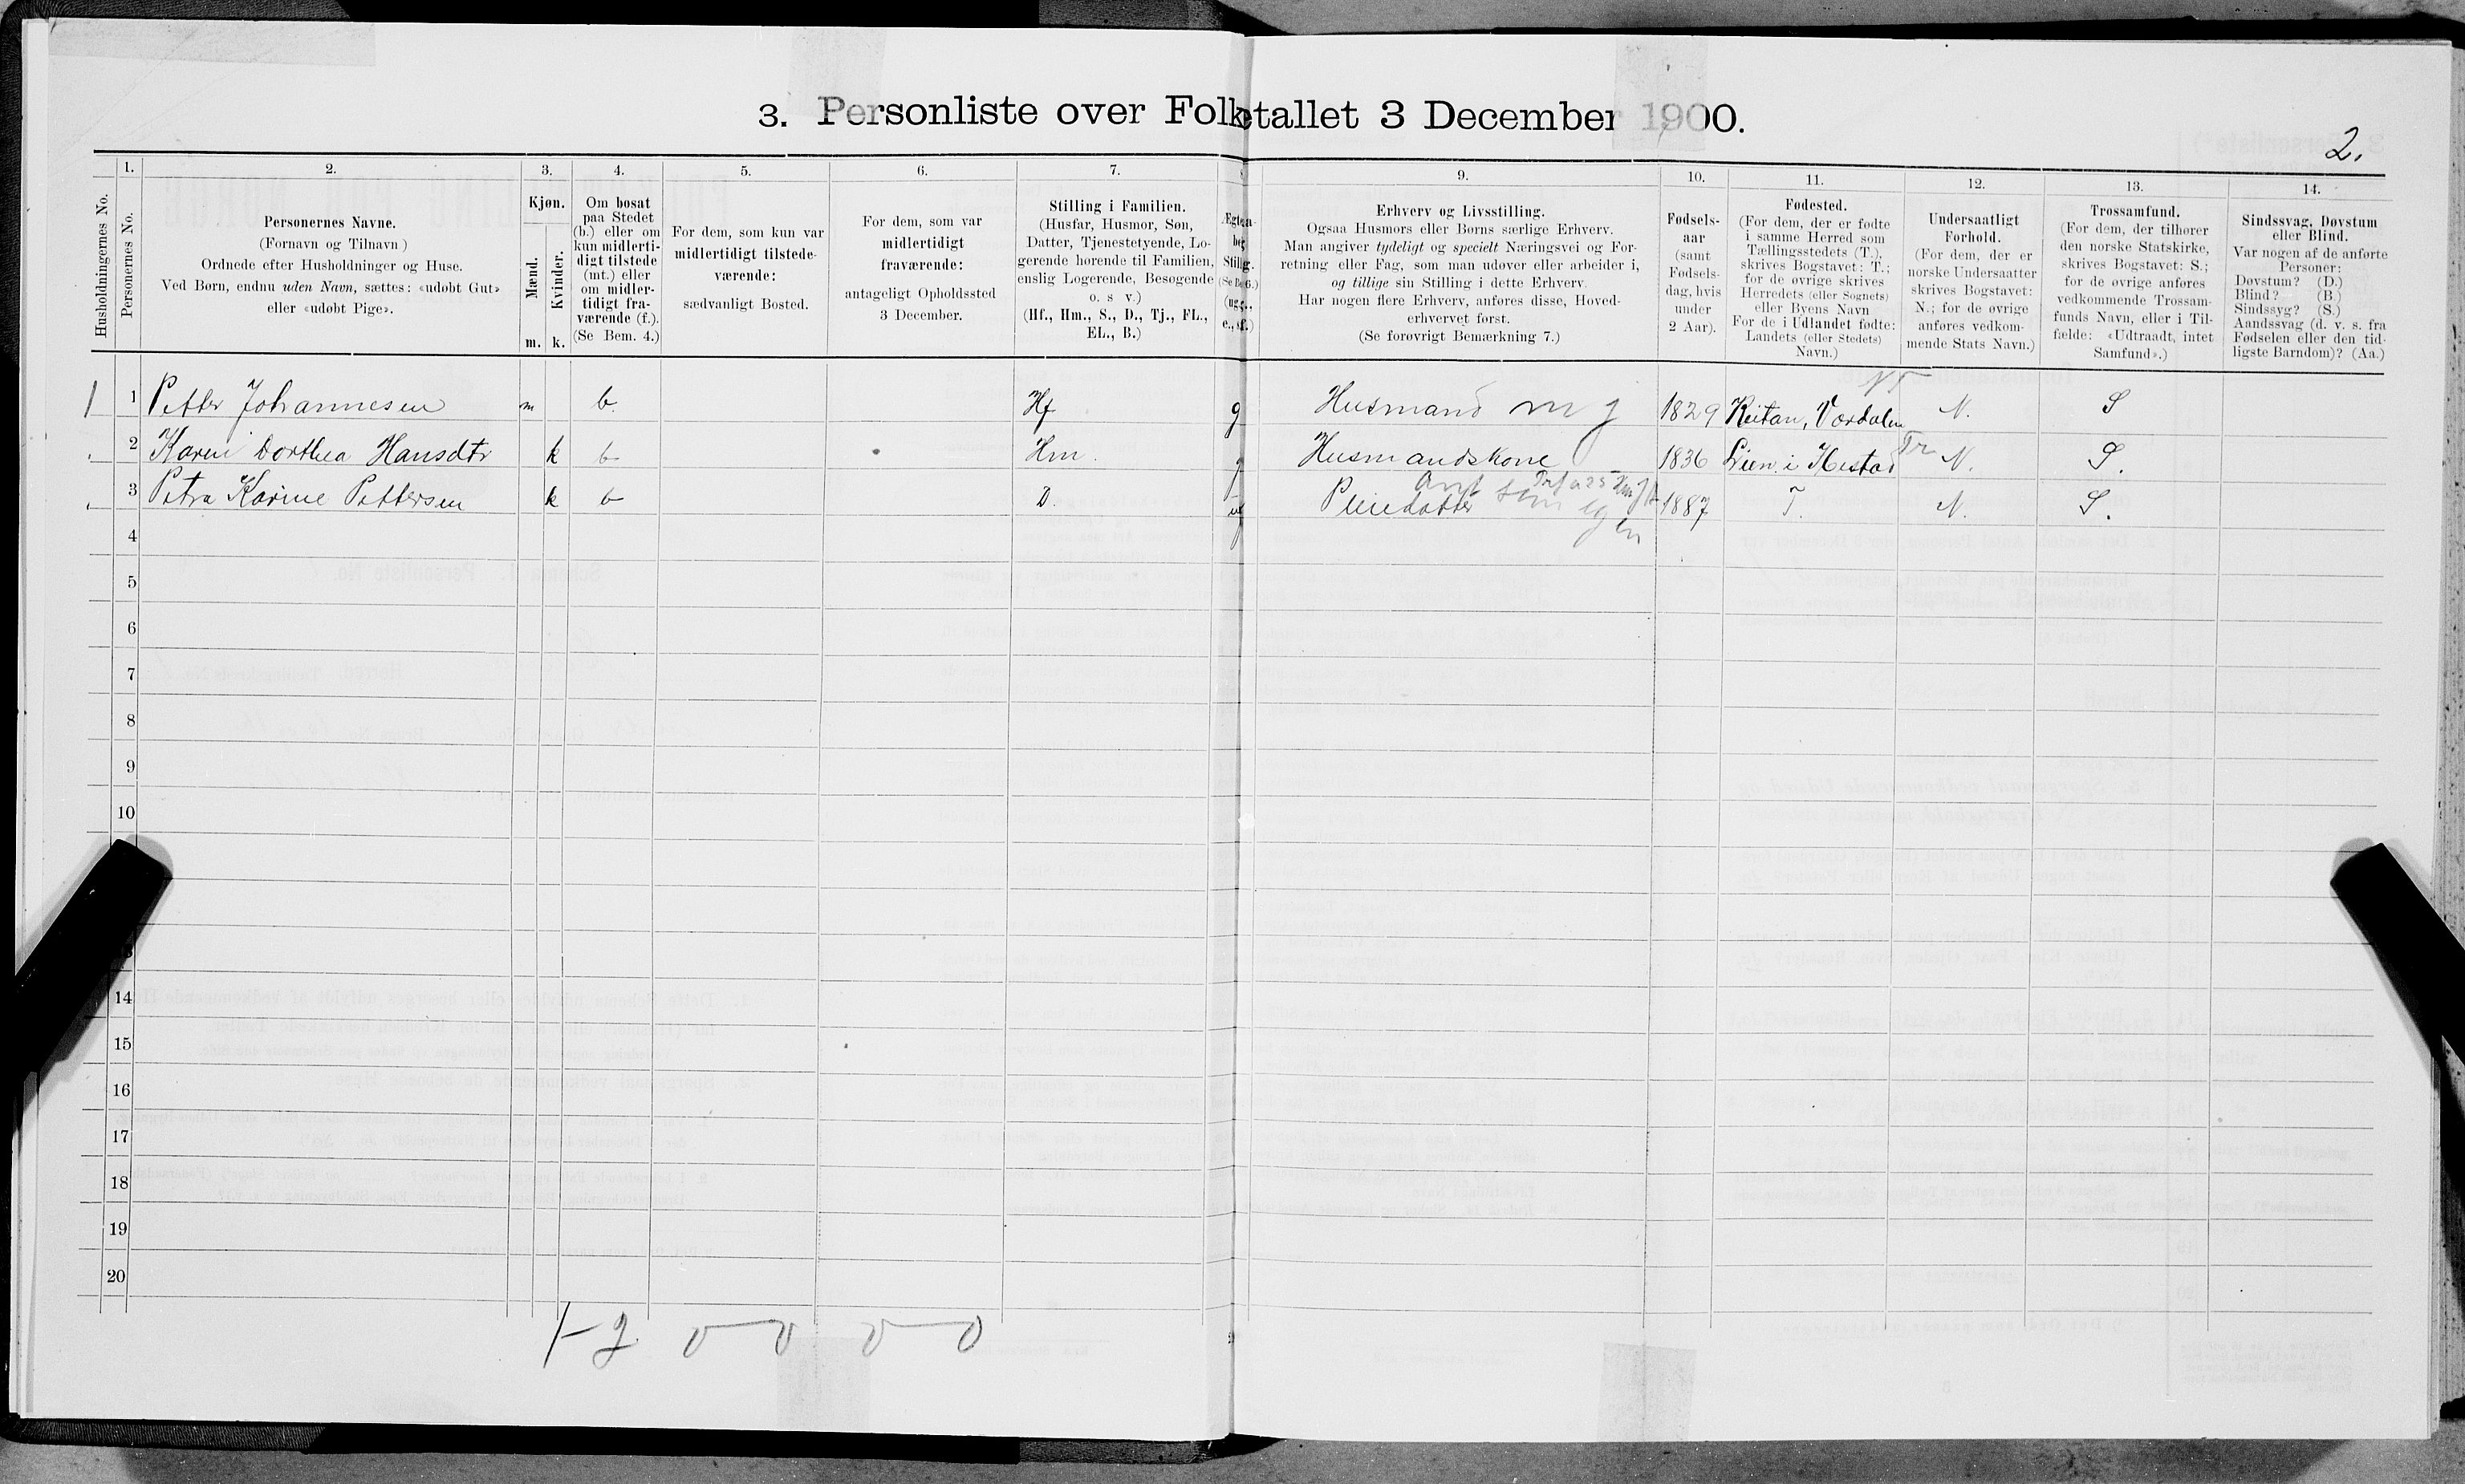 3. Personliste over Folketallet 3 December 1900.
2.
1.
2.
3.
4.
5.
6.
7.
9.
10.
11.
12.
13.
14.
Husholdningernes No.
Personernes No.
Personernes Navne.
(Fornavn og Tilnavn)
Ordnede efter Husholdninger og Huse.
Ved Børn, endnu uden Navn, sættes: «udøbt Gut»
eller «udøbt Pige».
Kjøn.
Mænd.
Kvinder.
m.
k.
Om bosat
paa Stedet
(b.) eller om
kun midlerti-
digt tilstede
(mt.) eller
om midler-
tidigt fra-
værende (f.).
(Se Bem. 4.)
For dem, som kun var
midlertidigt tilstede-
værende:
sædvanligt Bosted.
For dem, som var
midlertidigt
fraværende:
antageligt Opholdssted
3 December.
Stilling i Familien.
(Husfar, Husmor, Søn,
Datter, Tjenestetyende, Lo-
gerende hørende til Familien,
enslig Logerende, Besøgende
o. s v.)
(Hf., Hm., S., D., Tj., FL.,
EL., B.)
Erhverv og Livsstilling.
Ogsaa Husmors eller Børns særlige Erhverv.
Man angiver tydeligt og specielt Næringsvei og For-
retning eller Fag, som man udøver eller arbeider i,
og tillige sin Stilling i dette Erhverv.
Har nogen flere Erhverv, anføres disse, Hoved-
erhvervet først.
(Se forøvrigt Bemærkning 7.)
Fødsels-
aar
(samt
Fødsels-
dag, hvis
under
2 Aar).
Fødested.
(For dem, der er fødte
i samme Herred som
Tællingsstedets (T.),
skrives Bogstavet: T.;
for de øvrige skrives
Herredets (eller Sognets)
eller Byens Navn
For de i Udlandet fødte:
Landets (eller Stedets)
Navn.)
Undersaatligt
Forhold.
(For dem, der er
norske Undersaatter
skrives Bogstavet:
N.; for de øvrige
anføres vedkom-
mende Stats Navn.)
Trossamfund.
(For dem, der tilhører
den norske Statskirke,
skrives Bogstavet: S.;
for de øvrige anføres
vedkommende Trossam-
funds Navn, eller i Til-
fælde: «Udtraadt, intet
Samfund».)
Sindssvag, Døvstum
eller Blind.
Var nogen af de anførte
Personer:
Døvstum? (D.)
Blind? (B.)
Sindssyg? (S.)
Aandssvag (d. v. s. fra
Fødselen eller den tid-
ligste Barndom)? (Aa.)
1 1 Petter Johannesen m b. Hf g Husmand m j 1829 Reitan, Værdalen N. S
2 Karen Dorthea Hansdtr k b Hm. g Husmandskone 1836 Lien i Hestad Tr N. S.
3 Petra Karine Pettersen k b D. Pleiedatter som egen 1887 T. N. S.
4
5
6
7
8
9
10
14
15
16
17
18
19
20
1-2 0-0 0-0